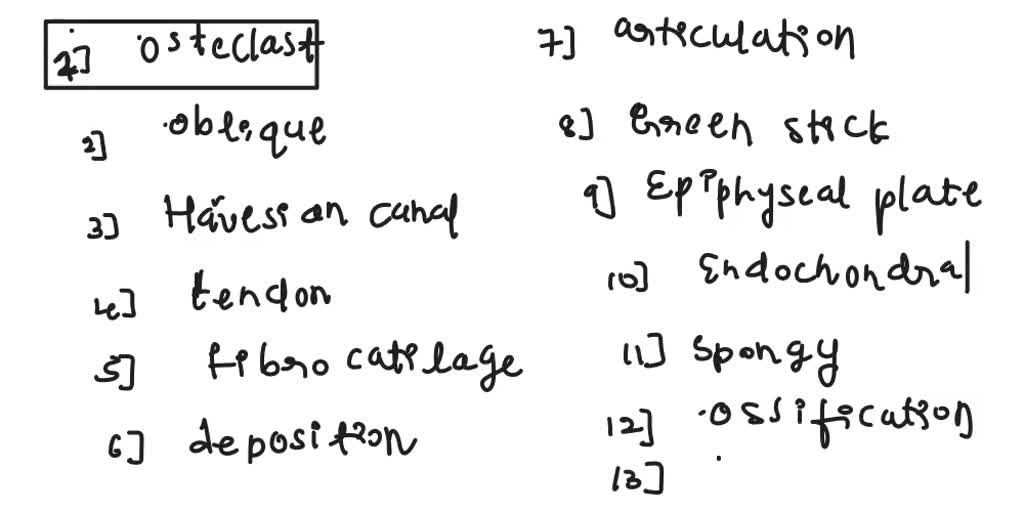 1] osteclast
2] oblique
3] Havesian canal
4] tendon
5] fibro catilage
6] deposition
7] articulation
8] Green stick
9] Epiphyseal plate
10] Endochondral
11] spongy
12] ossification
13]